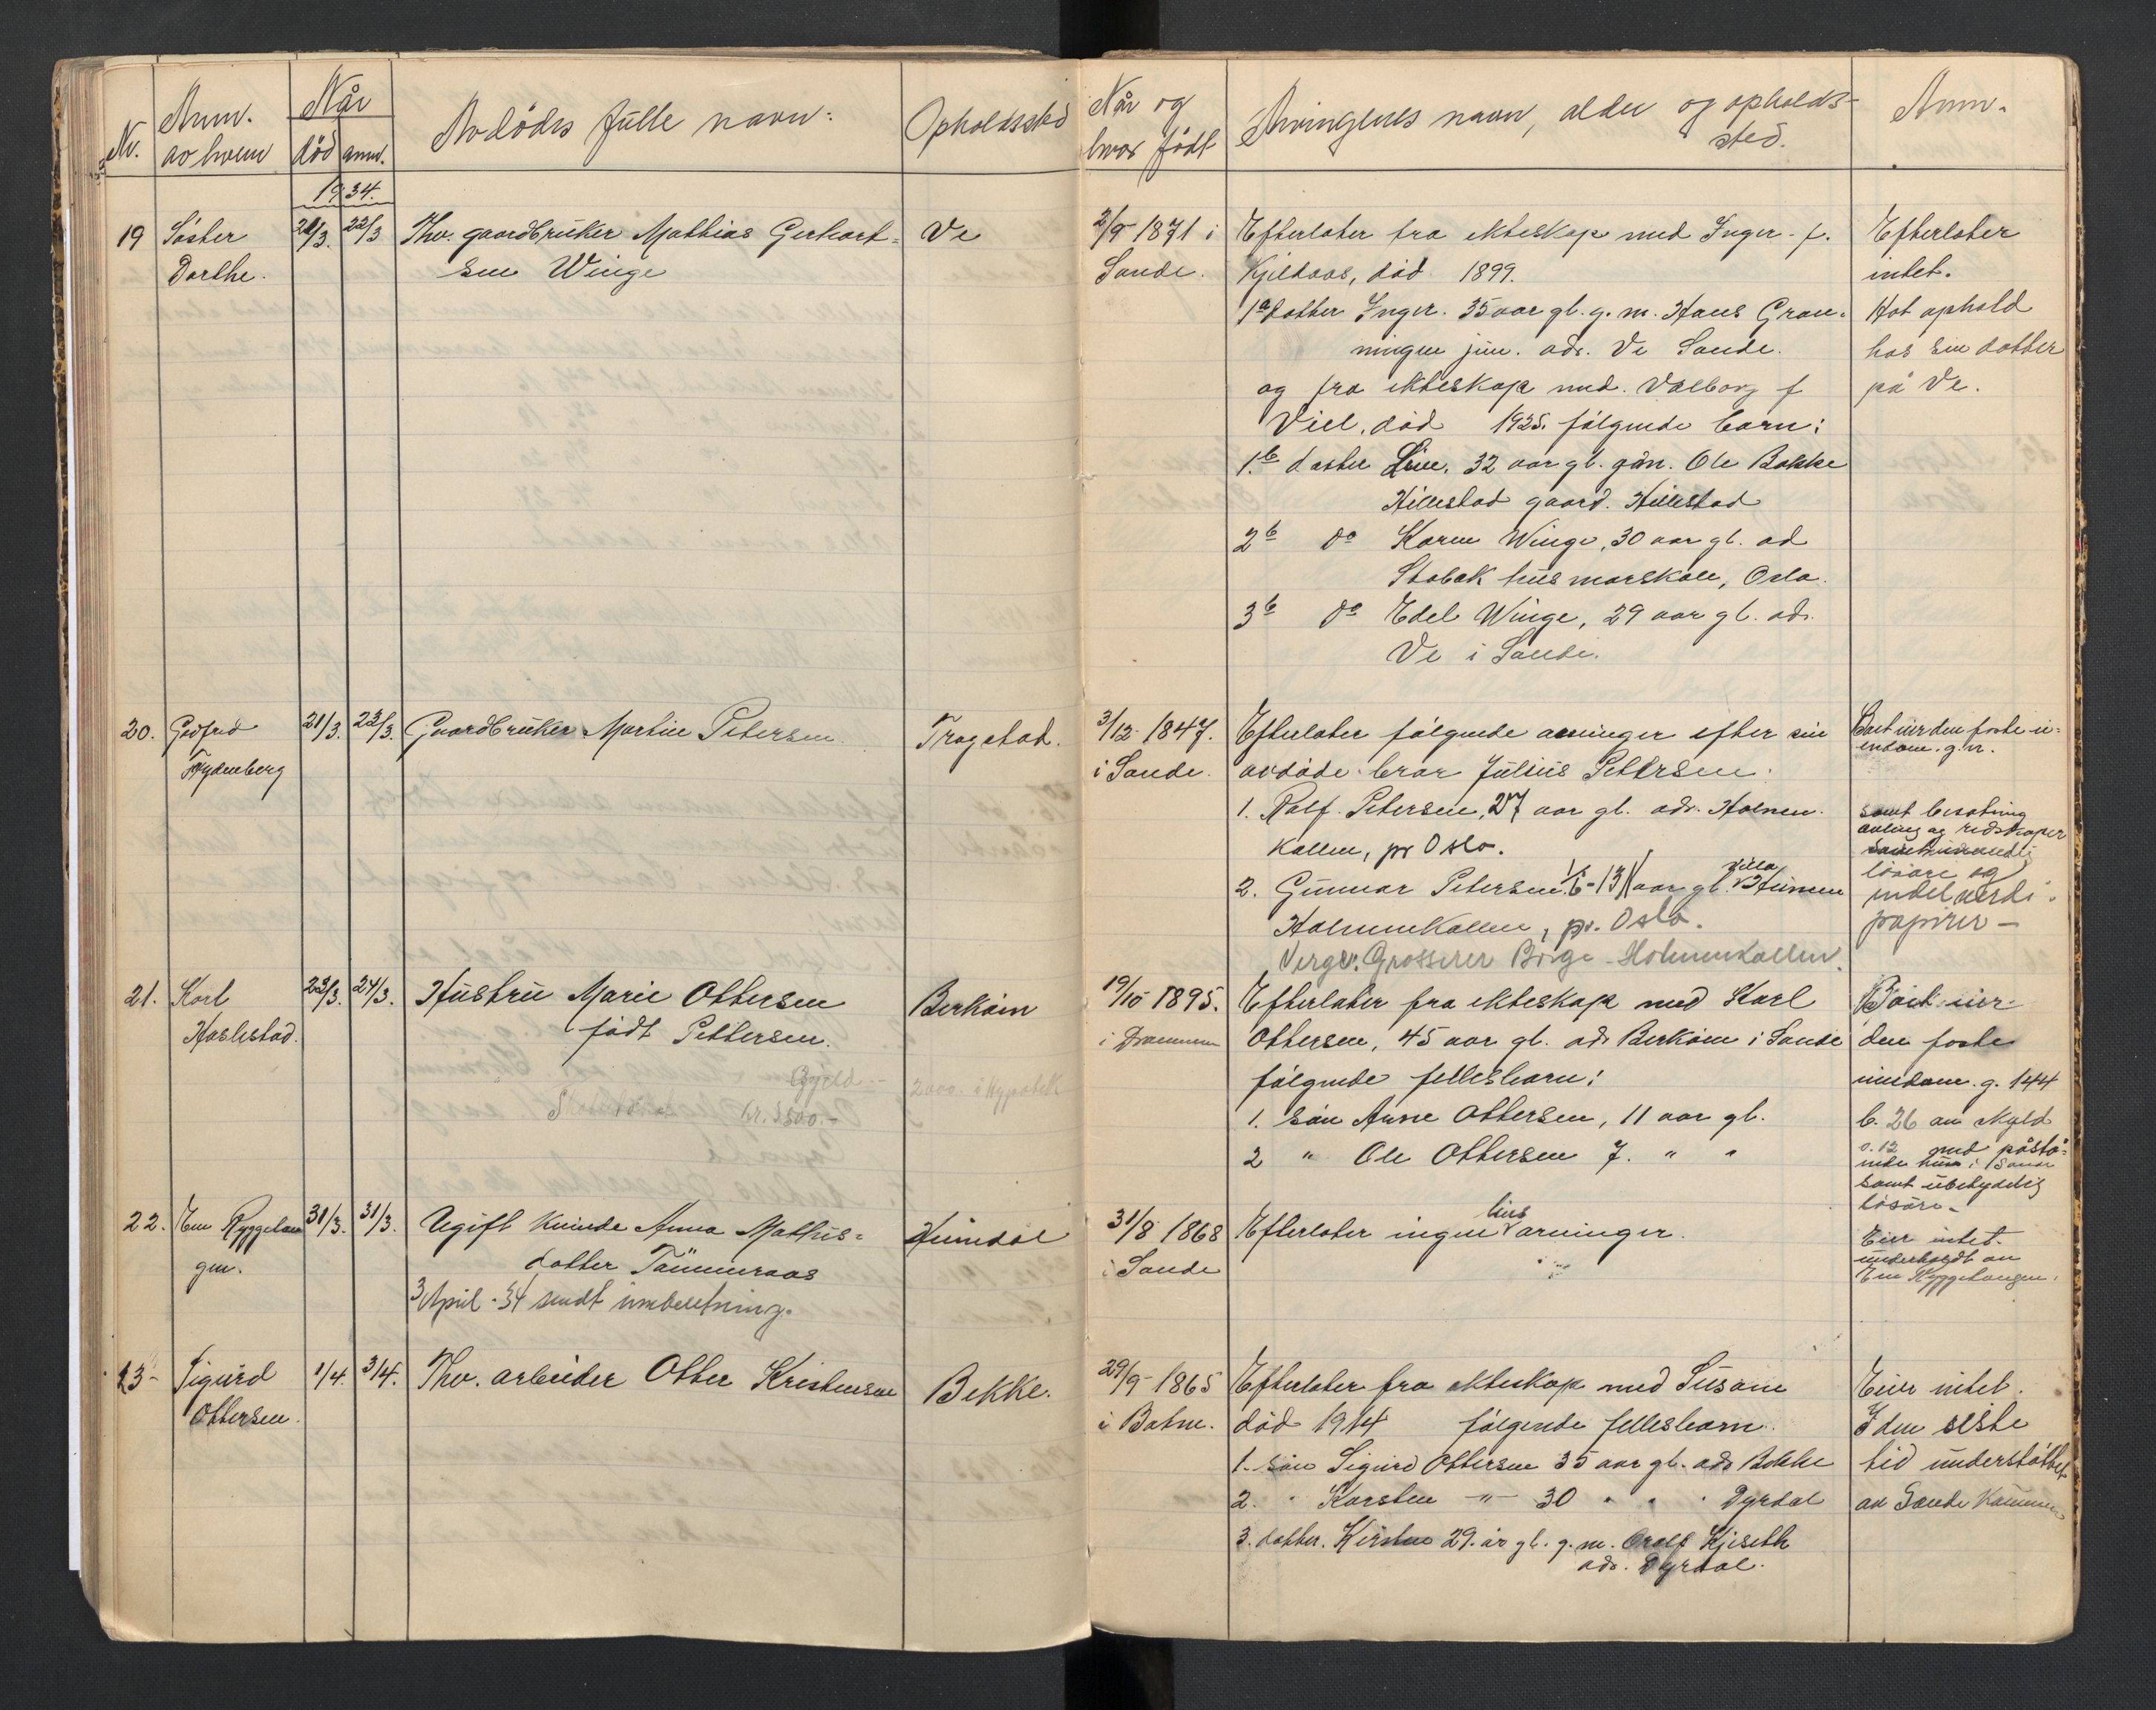 Nr.
Anm.
av hvem
Når
død
anm.
Avdødes fulle navn:
Opholdssted
Når og
hvor født
Arvingenes navn, alder og opholds-
sted.
Anm.
1934.
19
Søster
Dorthe.
22/3
Fhv. gaardbruker Mathias Gerhart-
sen Winge
Ve
2/9 1871 i
Sande.
Efterlater fra ekteskap med Inger f.
Kjeldaas, død 1899.
1a datter Inger. 35 aar gl. g. m. Hans Gran-
ningen jun. adr. Ve Sande.
og fra ekteskap med. Valborg f
død 1925. følgende barn:
1.b datter Line. 32 aar gl. g.m. Ole Bakke
Hillestad gaard. Hillestad
2b do Karen Winge, 30 aar gl. ad
Stabæk husmorskole, Oslo.
3b do Edel Winge, 29 aar gl. adr.
Ve i Sande.
Efterlater
intet.
Hat ophold
hos sin datter
på Ve.
20.
Godfred
Tydenberg
21/3.
23/3.
Gaardbruker Martin Petersen.
Tragstad.
3/12 1847.
i Sande.
Efterlater følgende arvinger efter sin
avdøde bror Julius Pettersen.
1. Rolf Petersen, 27 aar gl. adr. Holmen-
kollen, pr Oslo.
2. Gunnar Petersen. 1/6-13 aar gl. villa Heimen
Holmenkollen, pr. Oslo.
Verge: Grosserer Børge Holmenkollen.
Boet eier den faste ei-
endom. g.nr.
samt besætning
avling og redskaper
løsøre og
endel verdi-
papirer -
21.
Karl
Haslestad.
23/3.
24/3.
Hustru Marie Ottersen
født Pettersen.
Gjeld -
2000. i Hypotek
kr. 3500.-
Berkåm
19/10 1895.
i Drammen
Efterlater fra ekteskap med Karl
Ottersen, 45 aar gl. adr Berkåm i Sande
følgende fellesbarn:
1. søn Arne Ottersen, 11 aar gl.
2 " Ole Ottersen 7. " "
Boet eier
den faste
eiendom. g. 144
b. 26 av skyld
0.12 med påstå-
ende hus i Sande
samt ubetydelig
løsøre.
22.
Em Ryggetan
gen.
30/3.
31/3.
Ugift kvinde Anna Mathis-
datter Tømmeraas
3 April - 34 sendt innberetning.
Heimdal
31/8 1868
i Sande
Efterlater ingen livsarvinger.
Eier intet.
underholdt av
Em Ryggetangen.
23-
Sigurd
Ottersen.
1/4.
3/4.
Fhv. arbeider Otter Kristensen
Bekke.
29/9 1865
i Botne.
Efterlater fra ekteskap med Susane
død 1914 følgende fellesbarn.
1. søn Sigurd Ottersen 35 aar gl. adr Bekke
2. " Karsten -"- 30 " " " Dyrdal
3. datter. Kirsten 29. år gl. g. m. Oralf Kjiseth
adr. Dyrdal.
Eier intet.
I den siste
tid understøttet
av Sande Kommune